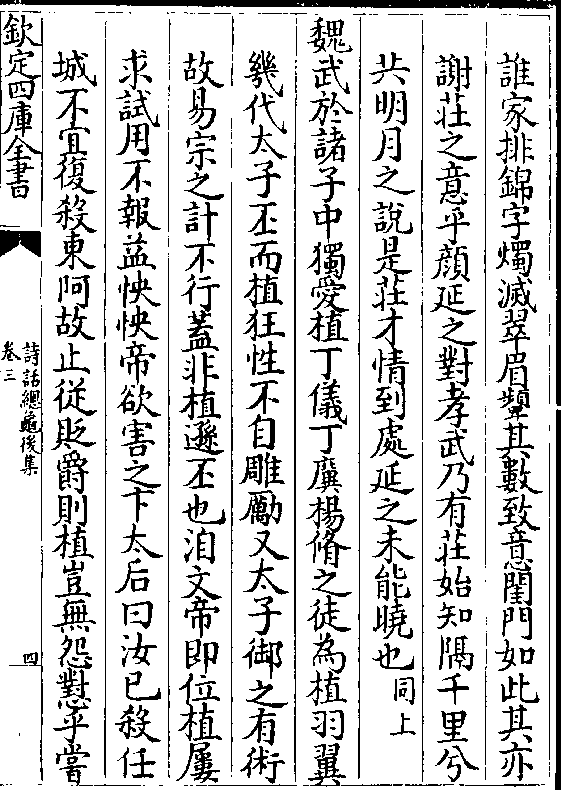 誰家排錦字燭滅翠眉顰其數致意閨門如此其亦
謝莊之意乎顔延之對孝武乃有莊始知隔千里兮
共明月之說是莊才情到處延之未能曉也同上
魏武於諸子中獨愛植丁儀丁廙楊脩之徒為植羽翼
幾代太子丕而植狂性不自雕勵又太子御之有術
故易宗之計不行蓋非植遜丕也洎文帝即位植屢
求試用不報益怏怏帝欲害之卞太后曰汝已殺任
城不宜復殺東阿故止從貶爵則植豈無怨懟乎嘗
欽定四庫全書
詩話總龜後集
卷三
四